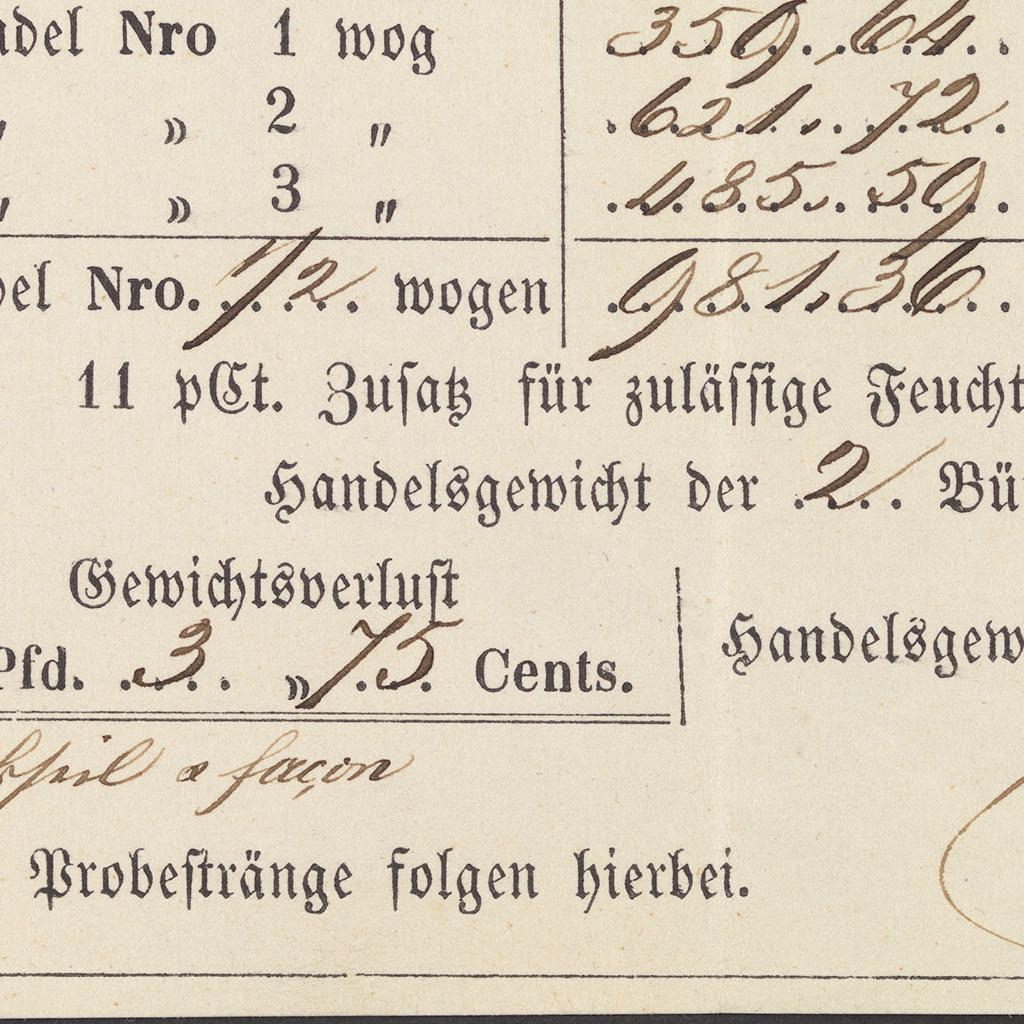 Nro 1 wog 359.,64.
„ » 2 „ 621.. 72.
„ » 3 „ 485.. 59.
Nro. 1/2. wogen 981.,36.
11 pCt. Zuſatz für zuläſſige Feucht
Handelsgewicht der 2. Bü
Gewichtsverluſt
Pfd. 3. „ 75. Cents. Handelsgew
façon
Probeſtränge folgen hierbei.